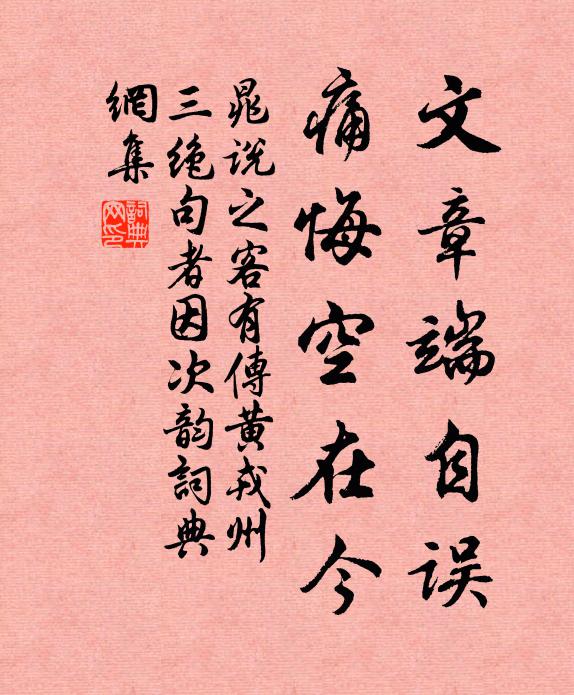 文章端自误
痛悔空在今
晁说之客有傳黄戎州
三绝句者因次韵詞典
網集
詞典
网印